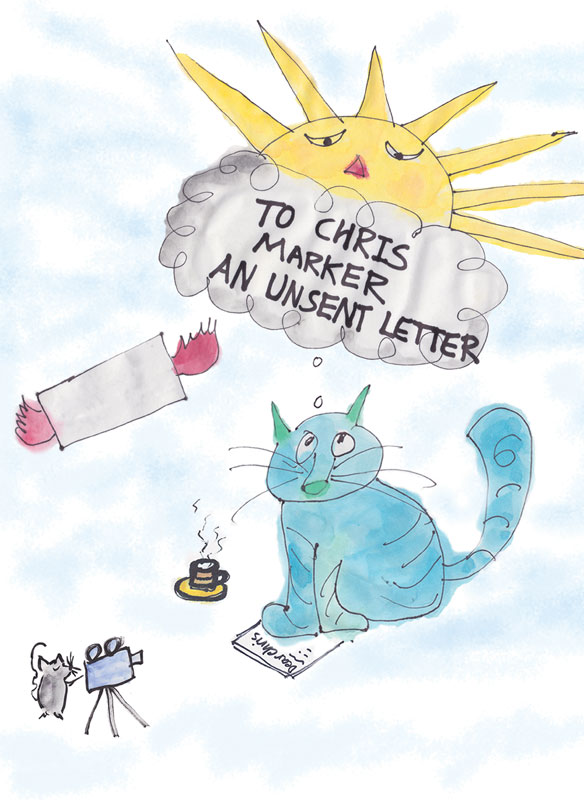 TO CHRIS
MARKER
AN UNSENT LETTER
Dear chris